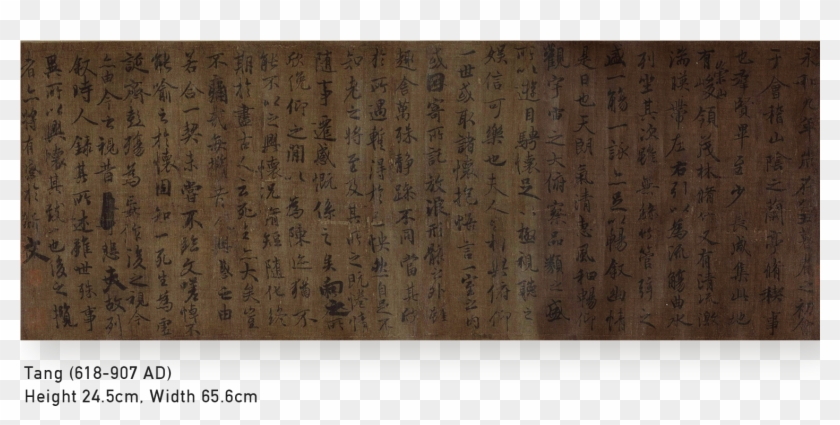 永和九年歲在癸丑暮春之初會
于會稽山陰之蘭亭脩稧事
也羣賢畢至少長咸集此地
有崇山峻領茂林脩竹又有清流激
湍暎帶左右引以為流觴曲水
列坐其次雖無絲竹管弦之
盛一觴一詠亦足以暢敘幽情
是日也天朗氣清惠風和暢仰
觀宇宙之大俯察品類之盛
所以遊目騁懷足以極視聽之
娛信可樂也夫人之相與俯仰
一世或取諸懷抱悟言一室之內
或因寄所託放浪形骸之外雖
趣舍萬殊靜躁不同當其欣
於所遇蹔得於己怏然自足不
知老之將至及其所之既惓情
隨事遷感慨係之矣向之所
欣俛仰之閒以為陳迹猶不
能不以之興懷況脩短隨化終
期於盡古人云死生亦大矣豈
不痛哉每攬昔人興感之由
若合一契未嘗不臨文嗟悼不
能喻之於懷固知一死生為虛
誕齊彭殤為妄作後之視今
亦由今之視昔悲夫故列
敘時人錄其所述雖世殊事
異所以興懷其致一也後之攬
者亦將有感於斯文
Tang (618-907 AD)
Height 24.5cm, Width 65.6cm